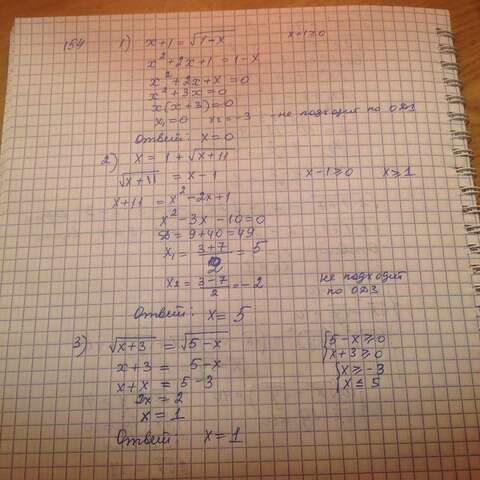 154 1) x+1=√1-x x+1≥0
x²+2x+1=1-x
x²+2x+x=0
x²+3x=0
x(x+3)=0
x₁=0 x₂=-3 -не подходит по ОДЗ
Ответ: x=0
2) x=1+√x+11
√x+11 = x-1 x-1≥0 x≥1
x+11 = x²-2x+1
x²-3x-10=0
D=9+40=49
x₁ = 3+7/2 = 5
x₂ = 3-7/2 = -2 не подходит
по ОДЗ
Ответ: x=5
3) √x+3 = √5-x {5-x≥0
x+3 = 5-x {x+3≥0
x+x = 5-3 {x≥-3
2x = 2 {x≤5
x = 1
Ответ: x=1